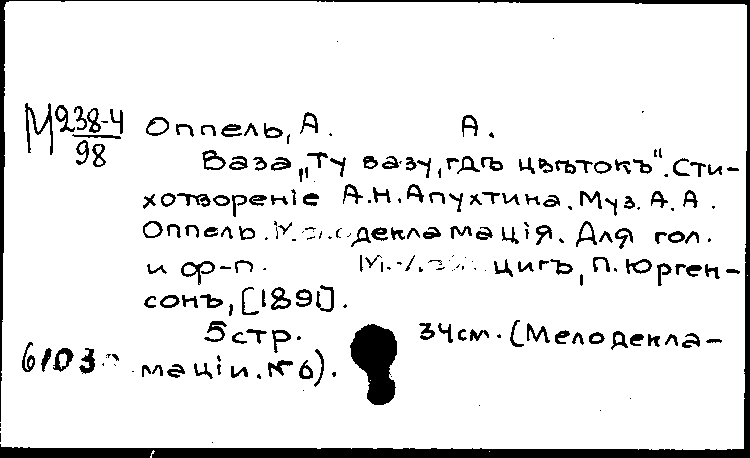 М 238-4/98 Оппель, А. А.
Ваза „Ту вазу, гдѣ цвѣтокъ". Сти-
хотворенiе А.Н.Апухтина. Муз. А. А.
Оппель. Мелодекламацiя. Для гол.
и ф-п. цигъ, П. Юрген-
сонъ, [1891].
5 стр. 34см. (Мелодекла-
мацiи. № 6).
6103